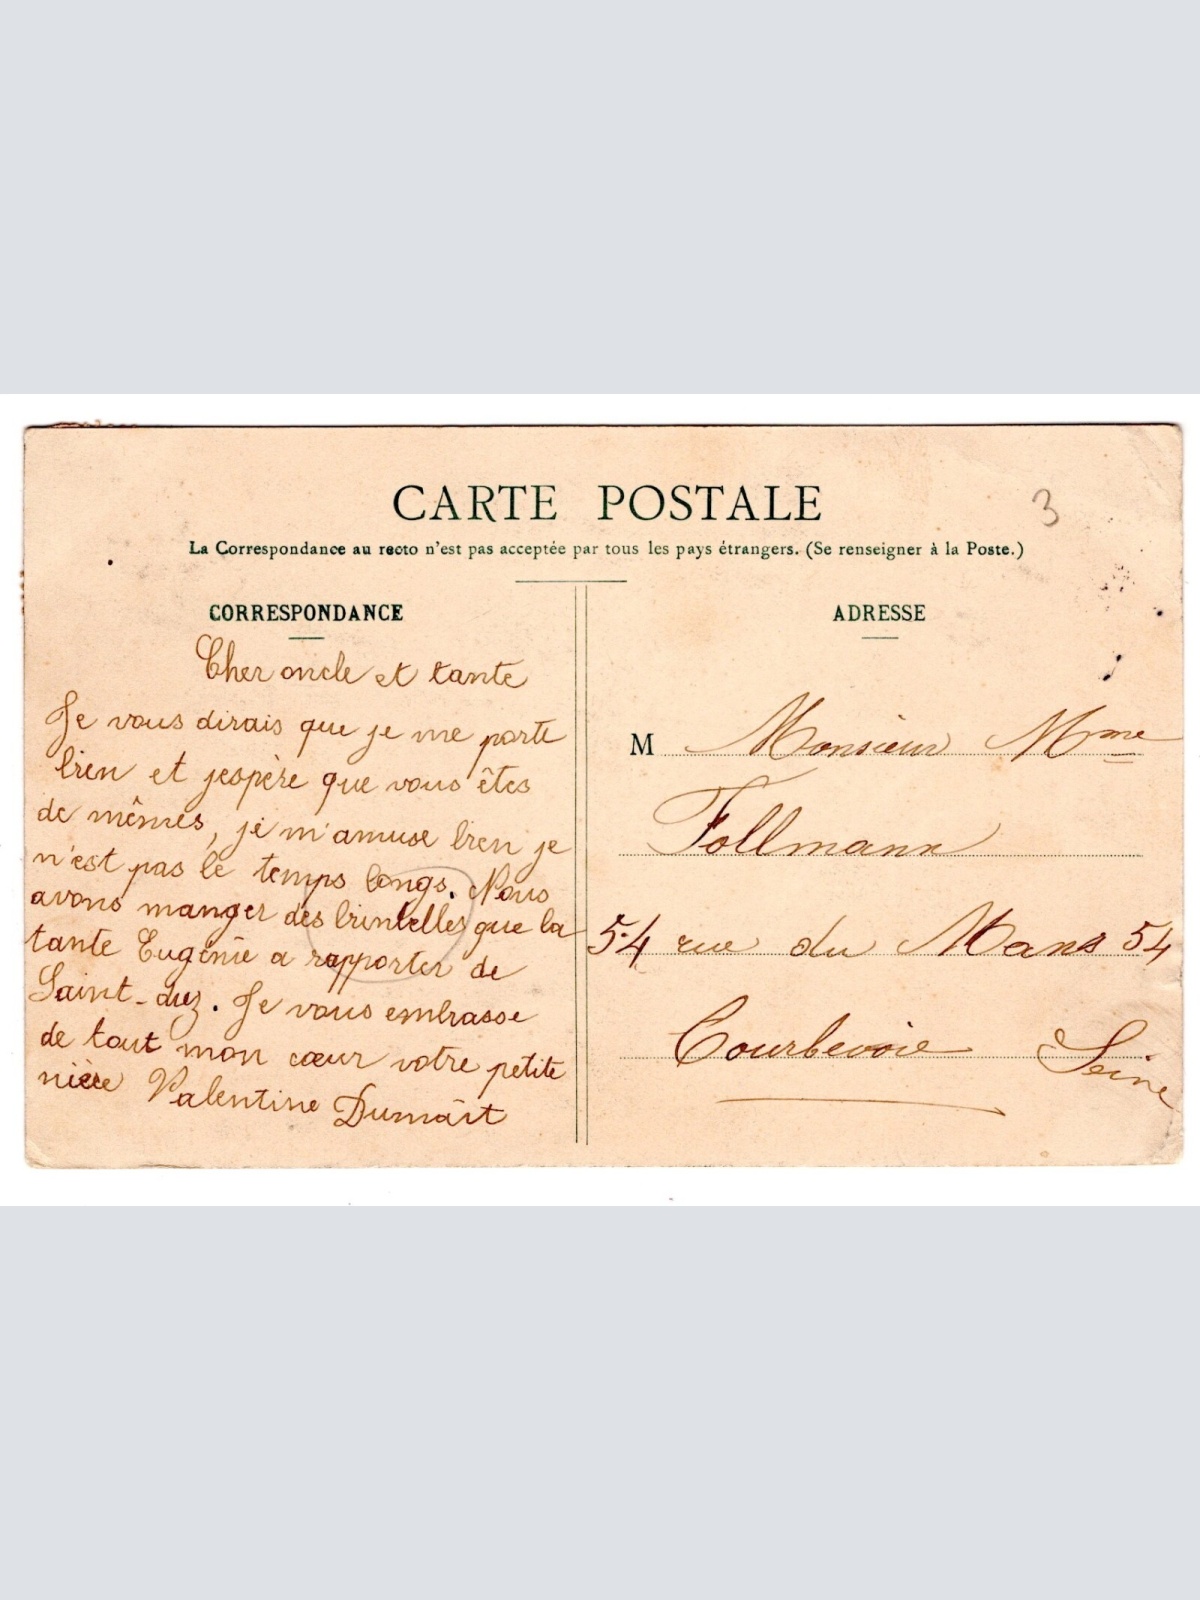 CARTE POSTALE
3
La Correspondance au recto n'est pas acceptée par tous les pays étrangers. (Se renseigner à la Poste.)
CORRESPONDANCE
Cher oncle et tante
Je vous dirais que je me porte
bien et jespère que vous êtes
de mêmes, je m'amuse bien je
n'est pas le temps longs. Nous
avons manger des brinbelles que la
tante Eugénie a rapporter de
Saint-diez. Je vous embrasse
de tout mon cœur votre petite
nièce Valentine Dumait
ADRESSE
M Monsieur Mme
Follmann
54 rue du Mans 54
Courbevoie Seine